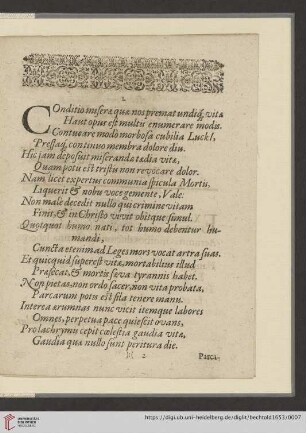 COnditio miseræ quæ nos premat undiq, vitæ
Haut opus est multis enumerare modis.
Contueare modò morbosa cubilia Lucki,
Pressaq, continuo membra dolore diu.
Hic jam deposuit miserandæ tædia vitæ,
Quam potuest tristu non revocare dolor.
Nam licet expertus communia spicula Mortis.
Liquerit & nobis voce gemente, Vale.
Non male decedit nullo qui crimine vitam
Finit, & in Christo vivit obitque simul.
Quotquot humo nati, tot humo debentur hu-
mandi,
Cuncta etenim ad Leges mors vocat atra suas.
Et quicquid superest vitæ, mortalibus illud
Præsecat, & mortis sæva tyrannis habet.
Non pietas, non ordo sacer, non vita probata,
Parcarum potis est fila tenere manu.
Interea ærumnas nunc vicit itemque labores
Omnes, perpetua pace quiescit ovans,
Pro lachrymis cepit cœlestia gaudia vitæ,
Gaudia quæ nullo sunt peritura die.
2
Parca
https://digi.ub.uni-heidelberg.de/diglit/bechtold1653/0007